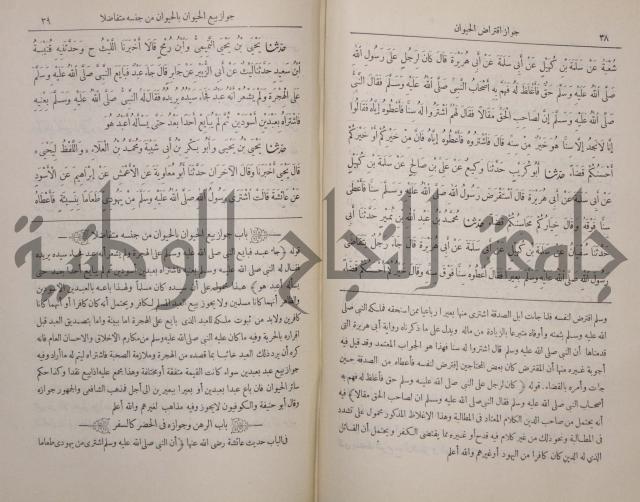 جواز اقتراض الحيوان
٣٨
شُعْبَةُ عَنْ سَلَمَةَ بْنِ كُهَيْلٍ عَنْ أَبِي سَلَمَةَ عَنْ أَبِي هُرَيْرَةَ قَالَ كَانَ لِرَجُلٍ عَلَى رَسُولِ اللهِ
صَلَّى اللهُ عَلَيْهِ وَسَلَّمَ حَقٌّ فَأَغْلَظَ لَهُ فَهَمَّ بِهِ أَصْحَابُ النَّبِيِّ صَلَّى اللهُ عَلَيْهِ وَسَلَّمَ فَقَالَ النَّبِيُّ
صَلَّى اللهُ عَلَيْهِ وَسَلَّمَ إِنَّ لِصَاحِبِ الْحَقِّ مَقَالًا فَقَالَ لَهُمُ اشْتَرُوا لَهُ سِنًّا فَأَعْطُوهُ إِيَّاهُ فَقَالُوا
إِنَّا لَا نَجِدُ إِلَّا سِنًّا هُوَ خَيْرٌ مِنْ سِنِّهِ قَالَ فَاشْتَرُوهُ فَأَعْطُوهُ إِيَّاهُ فَإِنَّ مِنْ خَيْرِكُمْ أَوْ خَيْرَكُمْ
أَحْسَنُكُمْ قَضَاءً حدثنا أَبُو كُرَيْبٍ حَدَّثَنَا وَكِيعٌ عَنْ عَلِيِّ بْنِ صَالِحٍ عَنْ سَلَمَةَ بْنِ كُهَيْلٍ
عَنْ أَبِي سَلَمَةَ عَنْ أَبِي هُرَيْرَةَ قَالَ اسْتَقْرَضَ رَسُولُ اللهِ صَلَّى اللهُ عَلَيْهِ وَسَلَّمَ سِنًّا فَأَعْطَى
سِنًّا فَوْقَهُ وَقَالَ خِيَارُكُمْ مَحَاسِنُكُمْ قَضَاءً حدثنا مُحَمَّدُ بْنُ عَبْدِ اللهِ بْنِ نُمَيْرٍ حَدَّثَنَا أَبِي
حَدَّثَنَا سُفْيَانُ عَنْ سَلَمَةَ بْنِ كُهَيْلٍ عَنْ أَبِي سَلَمَةَ عَنْ أَبِي هُرَيْرَةَ قَالَ جَاءَ رَجُلٌ يَتَقَاضَى
رَسُولَ اللهِ صَلَّى اللهُ عَلَيْهِ وَسَلَّمَ بَعِيرًا فَقَالَ أَعْطُوهُ سِنًّا فَوْقَ سِنِّهِ وَقَالَ خَيْرُكُمْ أَحْسَنُكُمْ قَضَاءً
وسلم اقترض لنفسه فلما جاءت ابل الصدقة اشترى منها بعيرا رباعيا ممن استحقه فملكه النبي صلى
الله عليه وسلم بثمنه وأوفاه متبرعا بالزيادة من ماله ويدل على ما ذكرناه رواية أبي هريرة التي
قدمناها أن النبي صلى الله عليه وسلم قال اشتروا له سنا فهذا هو الجواب المعتمد وقد قيل فيه
أجوبة غيره منها أن المقترض كان بعض المحتاجين اقترض لنفسه فأعطاه من الصدقة حين
جاءت وأمره بالقضاء. قوله ﴿كان لرجل على النبي صلى الله عليه وسلم حق فأغلظ له فهم به
أصحاب النبي صلى الله عليه وسلم فقال النبي صلى الله عليه وسلم ان لصاحب الحق مقالا﴾ فيه
أنه يحتمل من صاحب الدين الكلام المعتاد في المطالبة وهذا الاغلاظ المذكور محمول على تشدد
في المطالبة ونحو ذلك من غير كلام فيه قدح أو غيره مما يقتضى الكفر ويحتمل أن القائل
الذي له الدين كان كافرا من اليهود أو غيرهم والله أعلم
جواز بيع الحيوان بالحيوان من جنسه متفاضلا
٣٩
حدثنا يَحْيَى بْنُ يَحْيَى التَّمِيمِيُّ وَابْنُ رُمْحٍ قَالَا أَخْبَرَنَا اللَّيْثُ ح وَحَدَّثَنِيهِ قُتَيْبَةُ
ابْنُ سَعِيدٍ حَدَّثَنَا لَيْثٌ عَنْ أَبِي الزُّبَيْرِ عَنْ جَابِرٍ قَالَ جَاءَ عَبْدٌ فَبَايَعَ النَّبِيَّ صَلَّى اللهُ عَلَيْهِ وَسَلَّمَ
عَلَى الْهِجْرَةِ وَلَمْ يَشْعُرْ أَنَّهُ عَبْدٌ فَجَاءَ سَيِّدُهُ يُرِيدُهُ فَقَالَ لَهُ النَّبِيُّ صَلَّى اللهُ عَلَيْهِ وَسَلَّمَ بِعْنِيهِ
فَاشْتَرَاهُ بِعَبْدَيْنِ أَسْوَدَيْنِ ثُمَّ لَمْ يُبَايِعْ أَحَدًا بَعْدُ حَتَّى يَسْأَلَهُ أَعَبْدٌ هُوَ
حدثنا يَحْيَى بْنُ يَحْيَى وَأَبُو بَكْرِ بْنُ أَبِي شَيْبَةَ وَمُحَمَّدُ بْنُ الْعَلَاءِ وَاللَّفْظُ لِيَحْيَى
قَالَ يَحْيَى أَخْبَرَنَا وَقَالَ الْآخَرَانِ حَدَّثَنَا أَبُو مُعَاوِيَةَ عَنِ الْأَعْمَشِ عَنْ إِبْرَاهِيمَ عَنِ الْأَسْوَدِ
عَنْ عَائِشَةَ قَالَتِ اشْتَرَى رَسُولُ اللهِ صَلَّى اللهُ عَلَيْهِ وَسَلَّمَ مِنْ يَهُودِيٍّ طَعَامًا بِنَسِيئَةٍ فَأَعْطَاهُ
باب جواز بيع الحيوان بالحيوان من جنسه متفاضلا
قوله ﴿جاء عبد فبايع النبي صلى الله عليه وسلم على الهجرة ولم يشعر أنه عبد فجاء سيده يريده
فقال له النبي صلى الله عليه وسلم بعنيه فاشتراه بعبدين أسودين ثم لم يبايع أحدا بعد حتى
يسأله أعبد هو﴾ هذا محمول على أن سيده كان مسلما ولهذا باعه بالعبدين الأسودين
والظاهر أنهما كانا مسلمين ولا يجوز بيع العبد المسلم لكافر ويحتمل أنه كان كافرا أو أنهما كانا
كافرين ولا بد من ثبوت ملكه للعبد الذي بايع على الهجرة اما ببينة واما بتصديق العبد قبل
اقراره بالحرية وفيه ما كان عليه النبي صلى الله عليه وسلم من مكارم الأخلاق والاحسان العام فانه
كره أن يرد ذلك العبد خائبا بما قصده من الهجرة وملازمة الصحبة فاشتراه ليتم له ما أراد وفيه
جواز بيع عبد بعبدين سواء كانت القيمة متفقة أو مختلفة وهذا مجمع عليه اذا بيع نقدا وكذا حكم
سائر الحيوان فان باع عبدا بعبدين أو بعيرا ببعيرين الى أجل فمذهب الشافعي والجمهور جوازه
وقال أبو حنيفة والكوفيون لا يجوز وفيه مذاهب لغيرهم والله أعلم
باب الرهن وجوازه في الحضر كالسفر
في الباب حديث عائشة رضى الله عنها ﴿أن النبي صلى الله عليه وسلم اشترى من يهودي طعاما
جامعة النجاح الوطنية